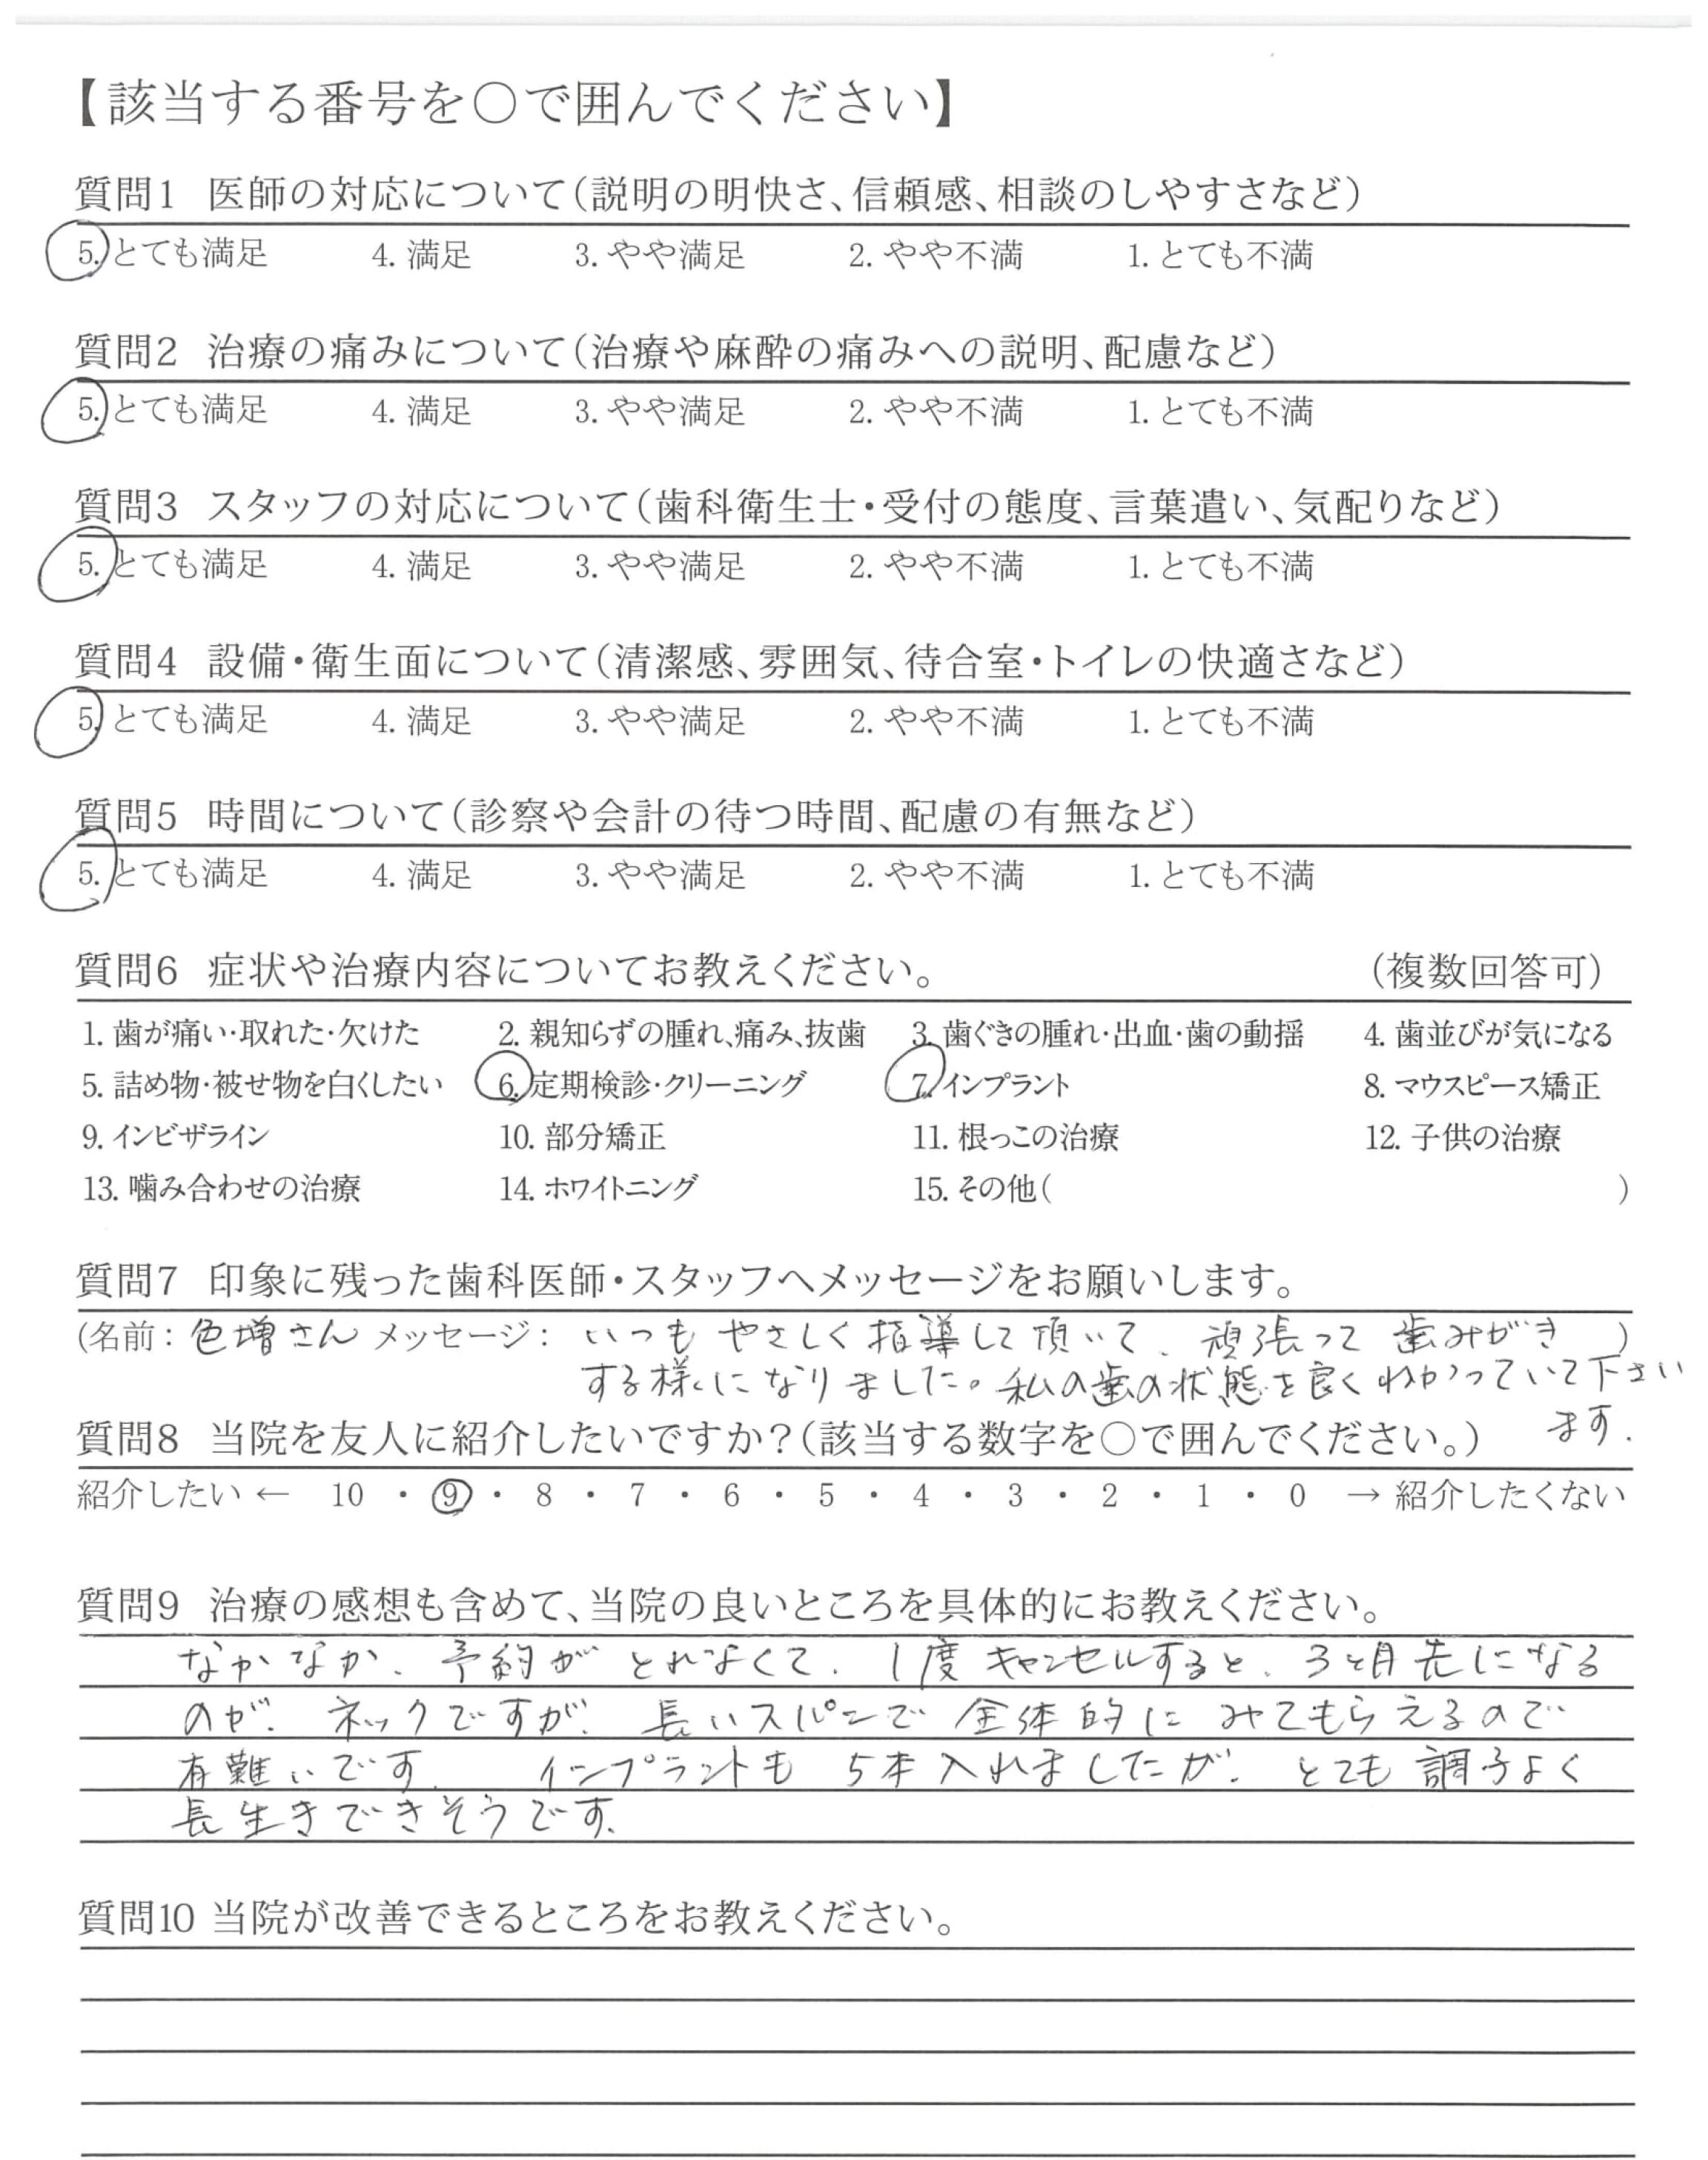 【該当する番号を○で囲んでください】
質問1 医師の対応について(説明の明快さ、信頼感、相談のしやすさなど)
5. とても満足 4. 満足 3. やや満足 2. やや不満 1. とても不満
質問2 治療の痛みについて(治療や麻酔の痛みへの説明、配慮など)
5. とても満足 4. 満足 3. やや満足 2. やや不満 1. とても不満
質問3 スタッフの対応について(歯科衛生士・受付の態度、言葉遣い、気配りなど)
5. とても満足 4. 満足 3. やや満足 2. やや不満 1. とても不満
質問4 設備・衛生面について(清潔感、雰囲気、待合室・トイレの快適さなど)
5. とても満足 4. 満足 3. やや満足 2. やや不満 1. とても不満
質問5 時間について(診察や会計の待つ時間、配慮の有無など)
5. とても満足 4. 満足 3. やや満足 2. やや不満 1. とても不満
質問6 症状や治療内容についてお教えください。 (複数回答可)
1. 歯が痛い・取れた・欠けた 2. 親知らずの腫れ、痛み、抜歯 3. 歯ぐきの腫れ・出血・歯の動揺 4. 歯並びが気になる
5. 詰め物・被せ物を白くしたい 6. 定期検診・クリーニング 7. インプラント 8. マウスピース矯正
9. インビザライン 10. 部分矯正 11. 根っこの治療 12. 子供の治療
13. 噛み合わせの治療 14. ホワイトニング 15. その他( )
質問7 印象に残った歯科医師・スタッフへメッセージをお願いします。
(名前: 色増さん メッセージ: いつも やさしく指導して頂いて、頑張って 歯みがき )
する様になりました。私の歯の状態を良くわかっていて下さい
ます.
質問8 当院を友人に紹介したいですか?(該当する数字を○で囲んでください。)
紹介したい ← 10 ・ 9 ・ 8 ・ 7 ・ 6 ・ 5 ・ 4 ・ 3 ・ 2 ・ 1 ・ 0 → 紹介したくない
質問9 治療の感想も含めて、当院の良いところを具体的にお教えください。
なかなか、予約が とれなくて、1度キャンセルすると、3ヶ月先になる
のが、ネックですが、長いスパンで 全体的に みてもらえるので
有難いです. インプラントも 5本入れましたが、とても調子よく
長生きできそうです.
質問10 当院が改善できるところをお教えください。